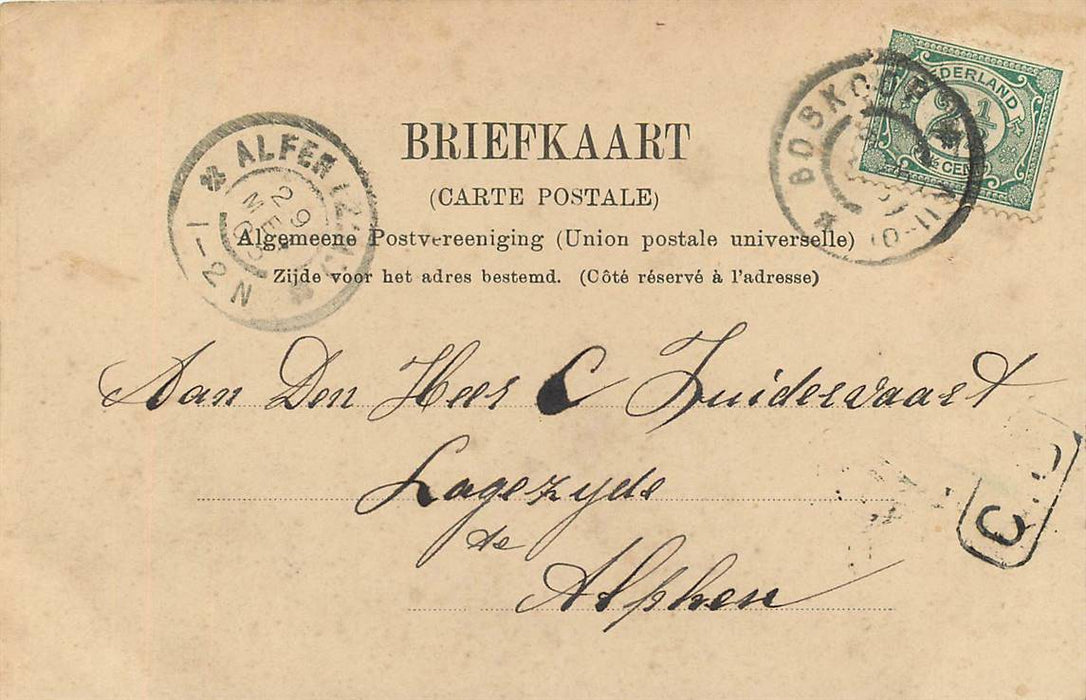 BRIEFKAART
(CARTE POSTALE)
Algemeene Postvereeniging (Union postale universelle)
Zijde voor het adres bestemd. (Côté réservé à l'adresse)
ALFEN
29 MEI
1-2N
BOSKOOP
NEDERLAND
2 1/2
CENT
Aan Den Heer C Zuidervaart
Lagezyde
de
Alphen
C